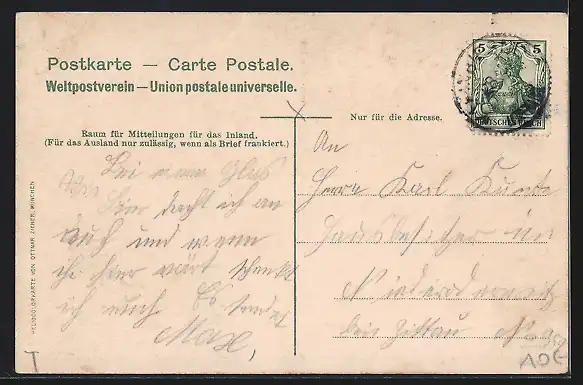 Postkarte — Carte Postale.
Weltpostverein — Union postale universelle.
Nur für die Adresse.
Raum für Mitteilungen für das Inland.
(Für das Ausland nur zulässig, wenn als Brief frankiert.)
5 5
DEUTSCHES REICH
HELIOCOLORKARTE VON OTTMAR ZIEHER, MÜNCHEN
Bei einem Glas
Bier dacht ich an
Euch und wenn
ihr hier wärt schenkt
ich euch
Max,
An
Herrn Karl
Hausbesitzer in
Niederoderwitz
bei Zittau
T